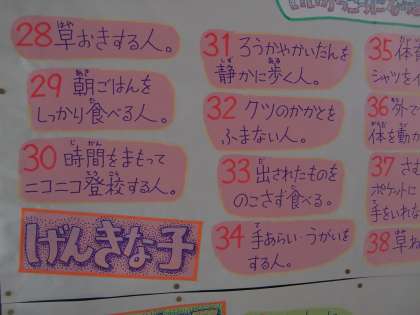 28 早おきする人。
29 朝ごはんを
しっかり食べる人。
30 時間をまもって
ニコニコ登校する人。
げんきな子
31 ろうかやかいだんを
静かに歩く人。
32 クツのかかとを
ふまない人。
33 出されたものを
のこさず食べる。
34 手あらい・うがいを
する人。
35 体
シャツを
36 外で
体を動か
37 さむ
ポケットに
手をいれな
38 早ね